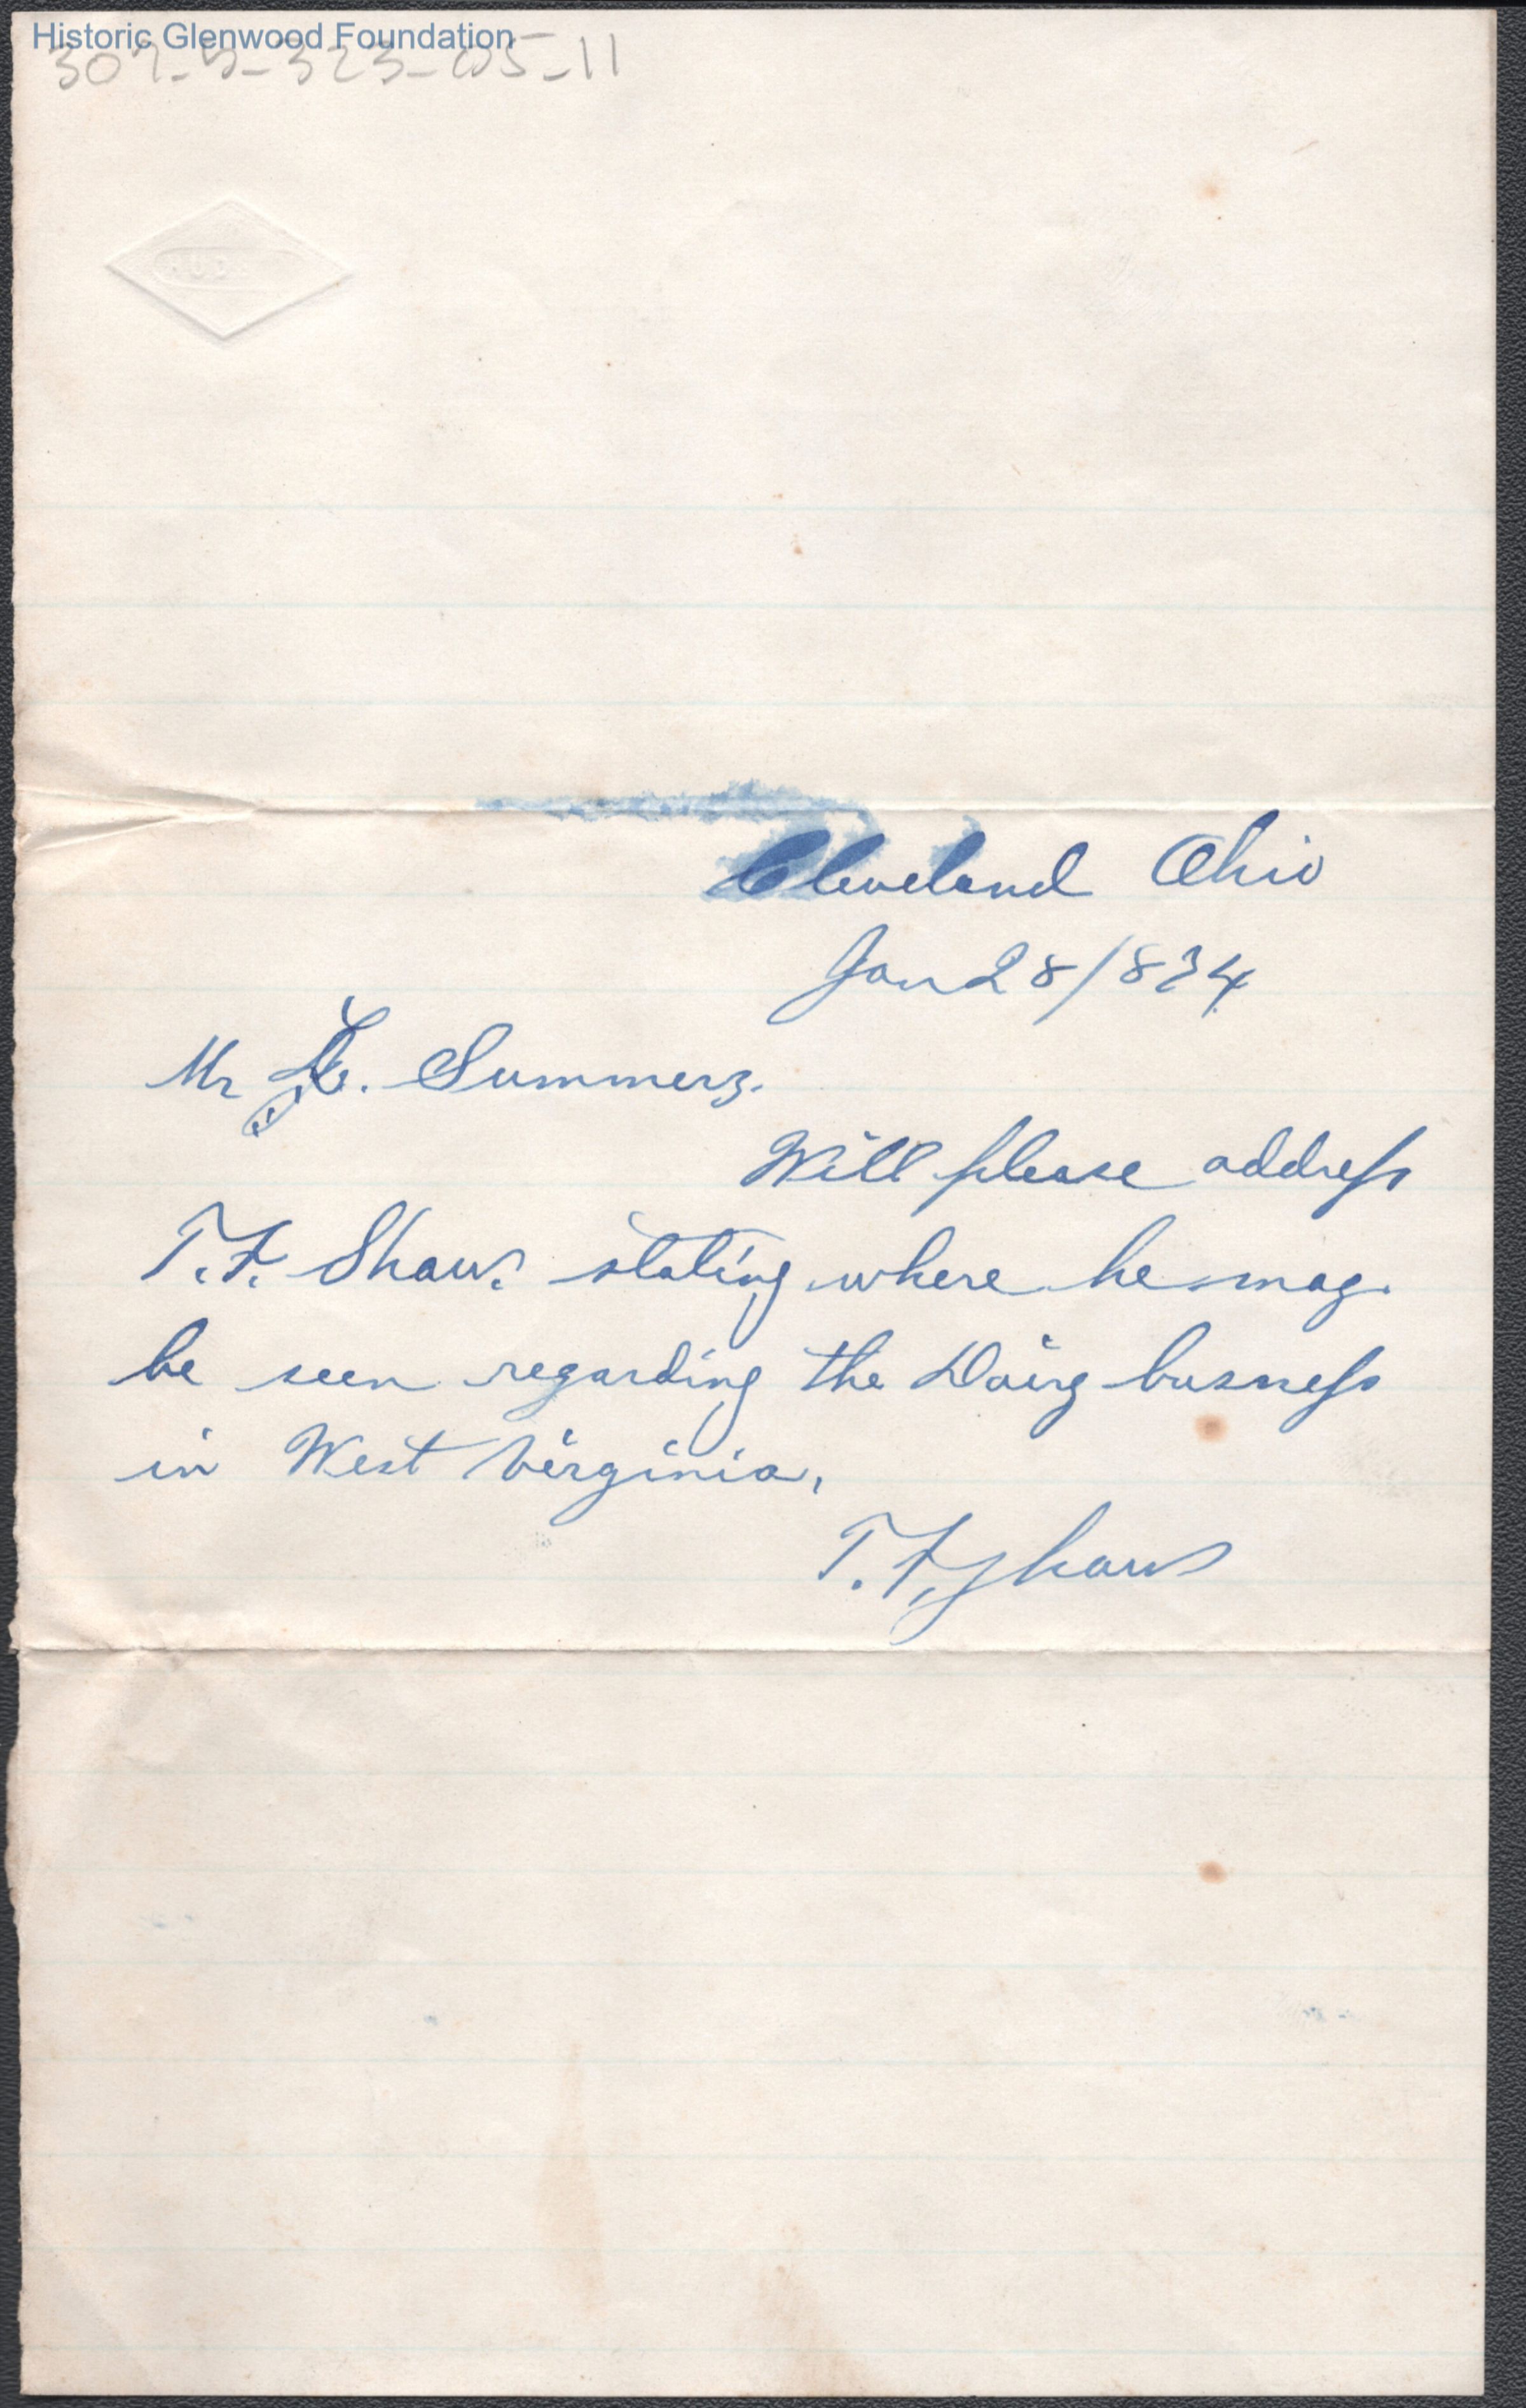 Historic Glenwood Foundation
Cleveland Ohio
Jan 28/874
Mr Summers.
Will please address
T. F. Shaw. stating where he may
be seen regarding the Dairy busness
in West Virginia,
T. F. Shaw